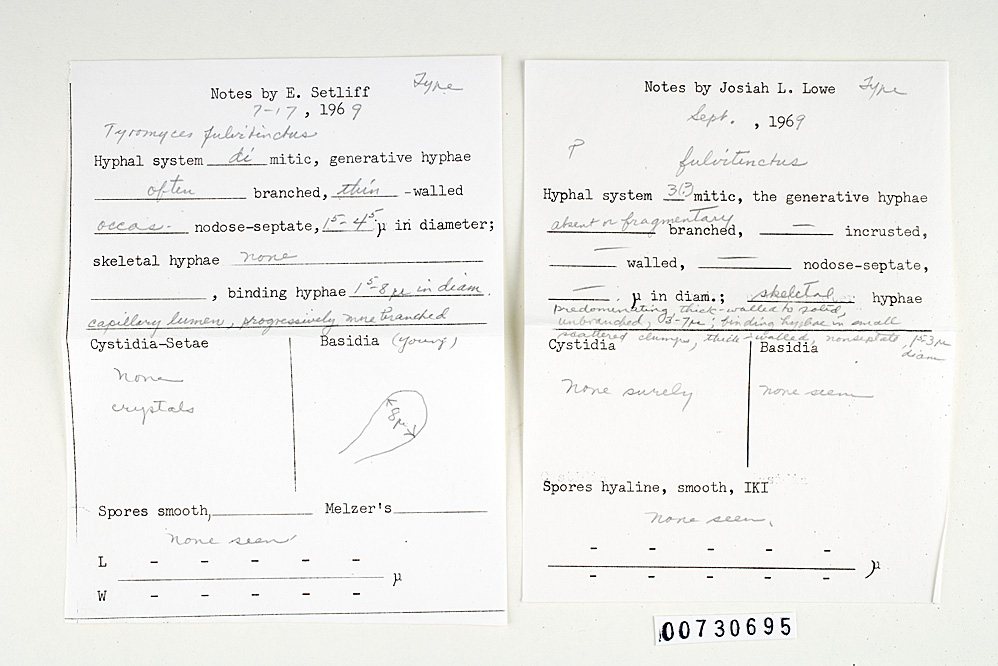 Type
Notes by E. Setliff
7-17, 1969
Tyromyces fulvitinctus
Hyphal system di mitic, generative hyphae
often branched, thin -walled
occas. nodose-septate, 1⁵-4⁵ µ in diameter;
skeletal hyphae none
, binding hyphae 1⁵-8µ in diam.
capillary lumen, progressively more branched
Cystidia-Setae
none
crystals
Basidia (young)
8µ
Spores smooth, Melzer's
none seen
L - - - - -
µ
W - - - - -
Type
Notes by Josiah L. Lowe
Sept. , 1969
P
fulvitinctus
Hyphal system 3(?)mitic, the generative hyphae
absent or fragmentary branched, — incrusted,
— walled, — nodose-septate,
— . µ in diam.; skeletal hyphae
predominating thick-walled to solid,
unbranched, 3-7µ; binding hyphae in small
scattered clumps, thick-walled, nonseptate, 1⁵-3µ
diam
Cystidia
None surely
Basidia
none seen
Spores hyaline, smooth, IKI
None seen.
- - - - -
µ
- - - - -
00730695